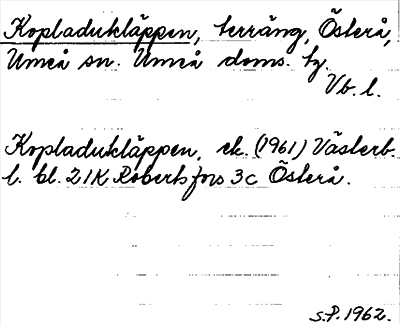 Kopladukläppen, terräng, Österå,
Umeå sn. Umeå doms. tg.
Vb. l.
Kopladukläppen, ek. (1961) Västerb.
l. bl. 21K Robertsfors 3c Österå.
S.P. 1962.